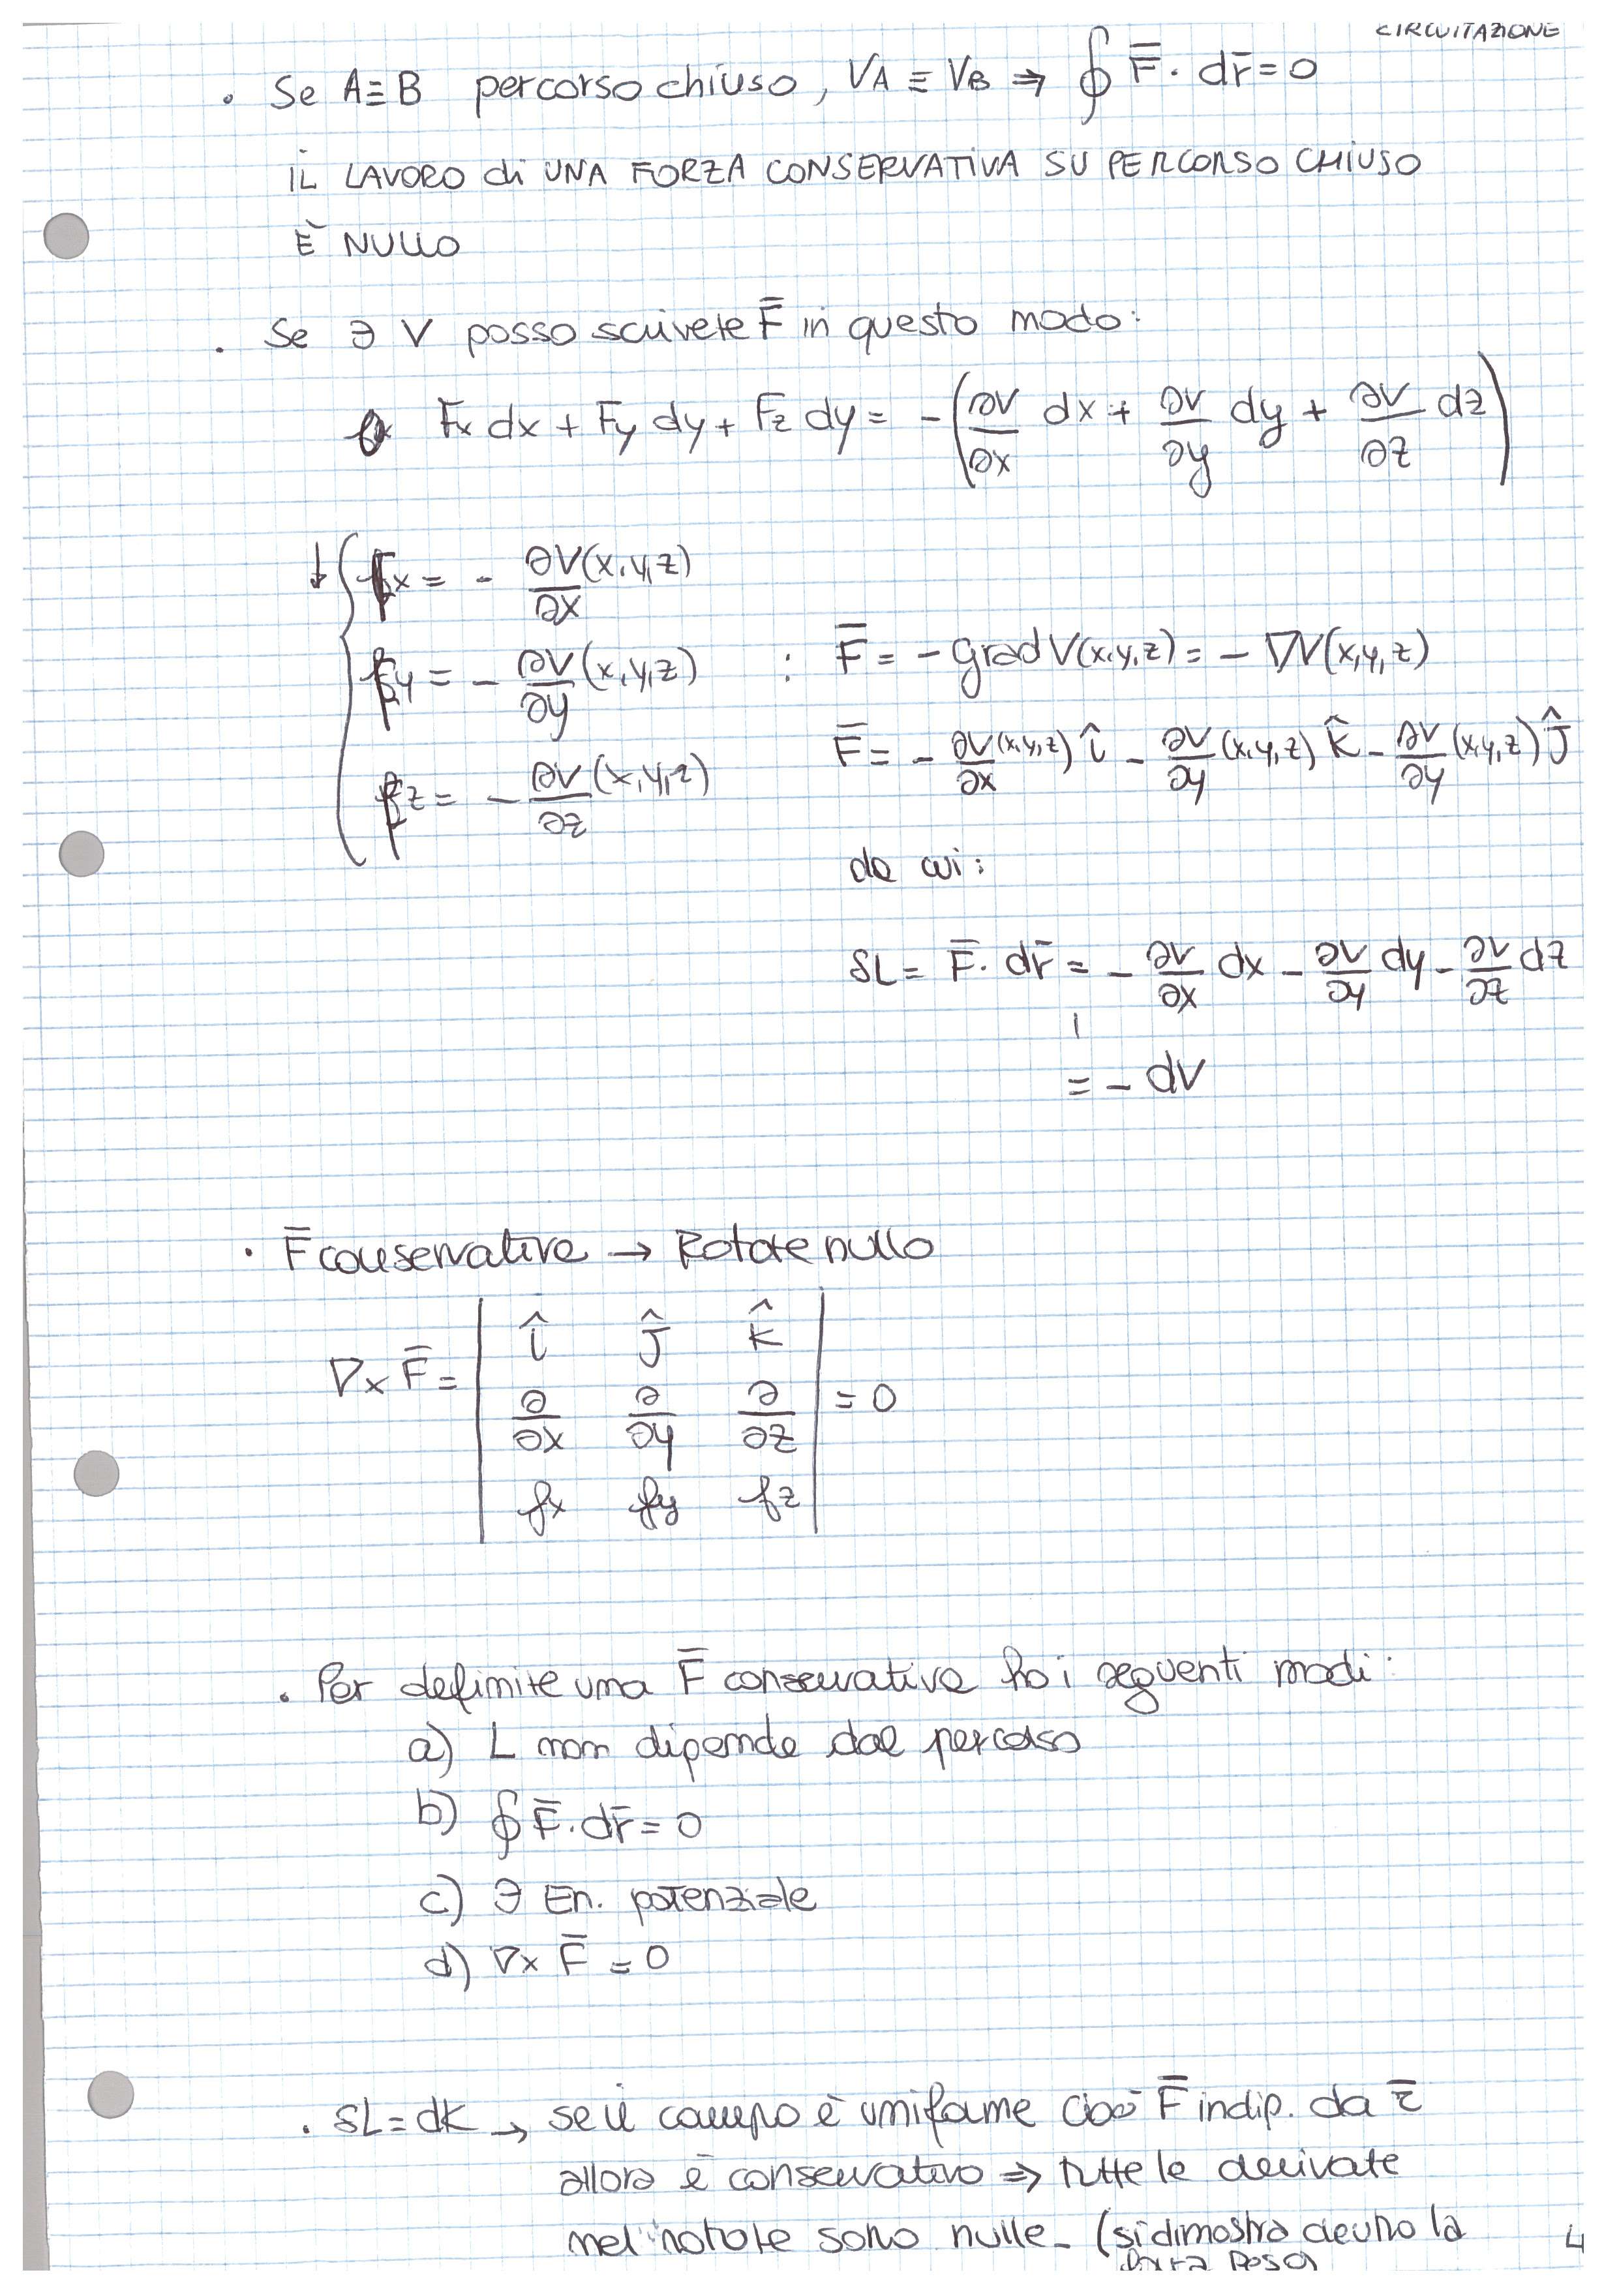 CIRCUITAZIONE
. Se A≡B percorso chiuso, VA ≡ VB ⇒ ∮ F̅ · dr̅ = 0
IL LAVORO di UNA FORZA CONSERVATIVA SU PERCORSO CHIUSO
È NULLO
. Se ∃ V posso scrivere F̅ in questo modo:
Fx dx + Fy dy + Fz dy = - (∂V/∂x dx + ∂V/∂y dy + ∂V/∂z dz)
↓ { Fx = - ∂V(x,y,z)/∂x
Fy = - ∂V/∂y (x,y,z) : F̅ = - grad V(x,y,z) = - ∇V(x,y,z)
Fz = - ∂V/∂z (x,y,z)
F̅ = - ∂V/∂x (x,y,z) î - ∂V/∂y (x,y,z) k̂ - ∂V/∂y (x,y,z) ĵ
da cui:
δL = F̅ · dr̅ = - ∂V/∂x dx - ∂V/∂y dy - ∂V/∂z dz
= - dV
. F̅ conservativa → Rotore nullo
∇× F̅ = | î ĵ k̂ |
| ∂/∂x ∂/∂y ∂/∂z | = 0
| fx fy fz |
. Per definire una F̅ conservativa ho i seguenti modi:
a) L non dipende dal percorso
b) ∮ F̅ · dr̅ = 0
c) ∃ En. potenziale
d) ∇× F̅ = 0
. δL = dK → se il campo è uniforme cioè F̅ indip. da r̅
allora è conservativo ⇒ tutte le derivate
nel rotore sono nulle - (si dimostra dentro la
forza peso)
4